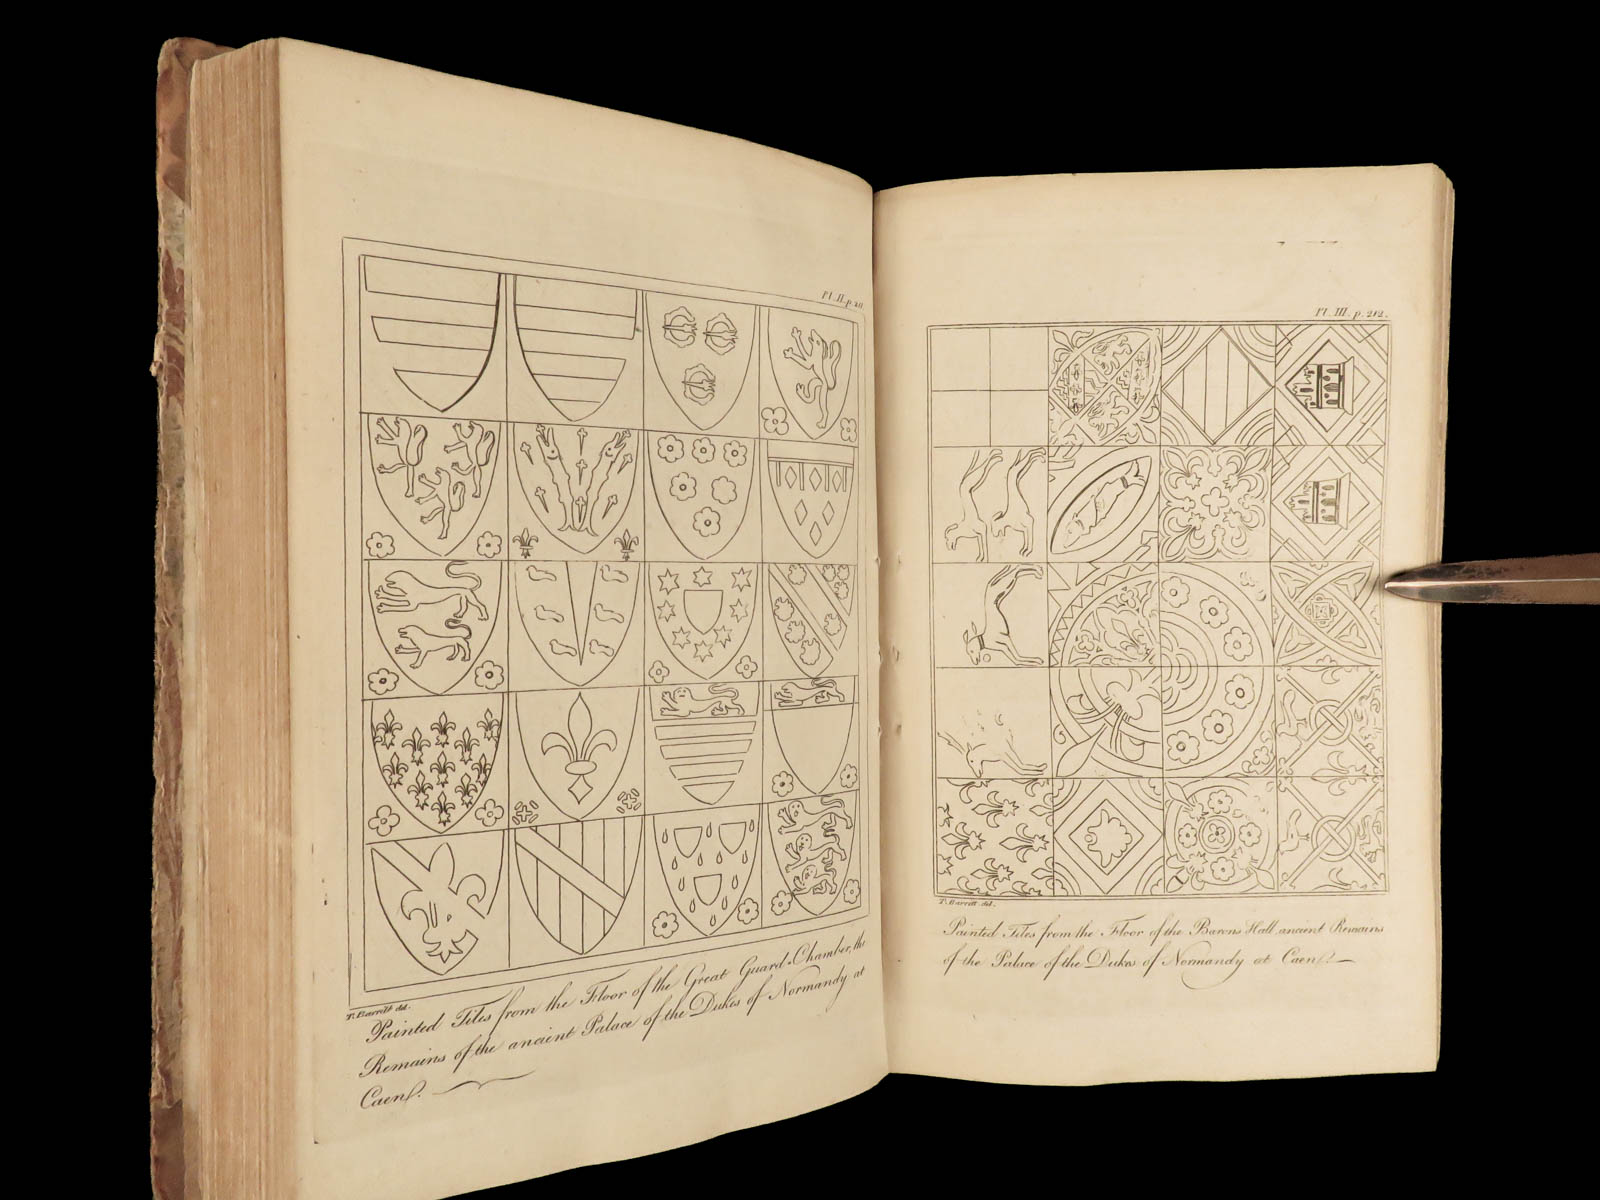 Pl. II. p. 211
T. Barrett del.
Painted Tiles from the Floor of the Great Guard-Chamber, the
Remains of the ancient Palace of the Dukes of Normandy at
Caen.
Pl. III. p. 212.
T. Barrett del.
Painted Tiles from the Floor of the Barons Hall, ancient Remains
of the Palace of the Dukes of Normandy at Caen.